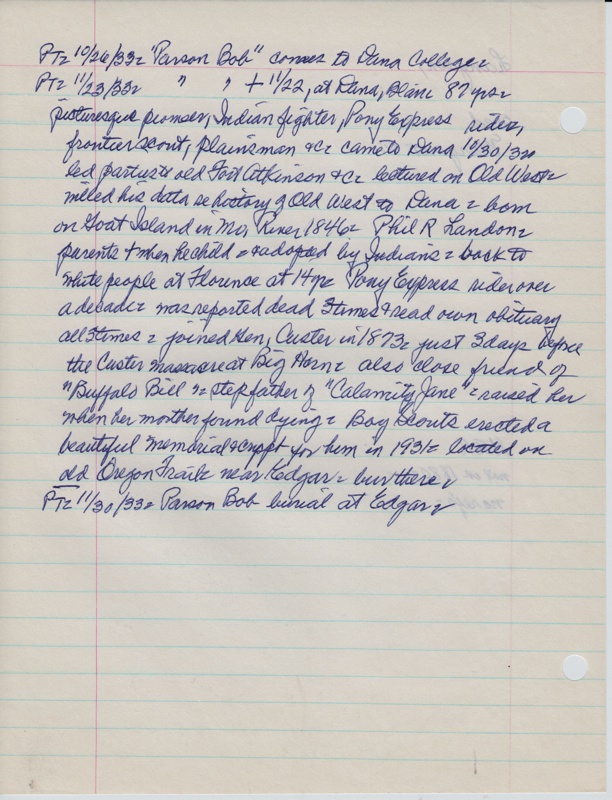 PT= 10/26/33= "Parson Bob" comes to Dana College=
PT= 11/23/33= " " + 11/22, at Dana, Blair 87 yrs=
picturesque pioneer, Indian fighter, Pony Express rider,
frontier scout, plainsman &c= came to Dana 10/30/33=
led party to old Fort Atkinson &c= lectured on Old West=
willed his data re history of Old West to Dana= born
on Goat Island in Mo, River 1846= Phil R Landon=
parents + when he child = & adopted by Indians= back to
white people at Florence at 14 yr= Pony Express rider over
a decade= was reported dead 3 times & read own obituary
all 3 times= joined Gen, Custer in 1873= just 3 days before
the Custer massacre at Big Horn= also close friend of
"Buffalo Bill"= stepfather of "Calamity Jane"= raised her
when her mother found dying= Boy Scouts erected a
beautiful memorial & crypt for him in 1931= located on
old Oregon Trail= near Edgar= bur there=
PT= 11/30/33= Parson Bob burial at Edgar=